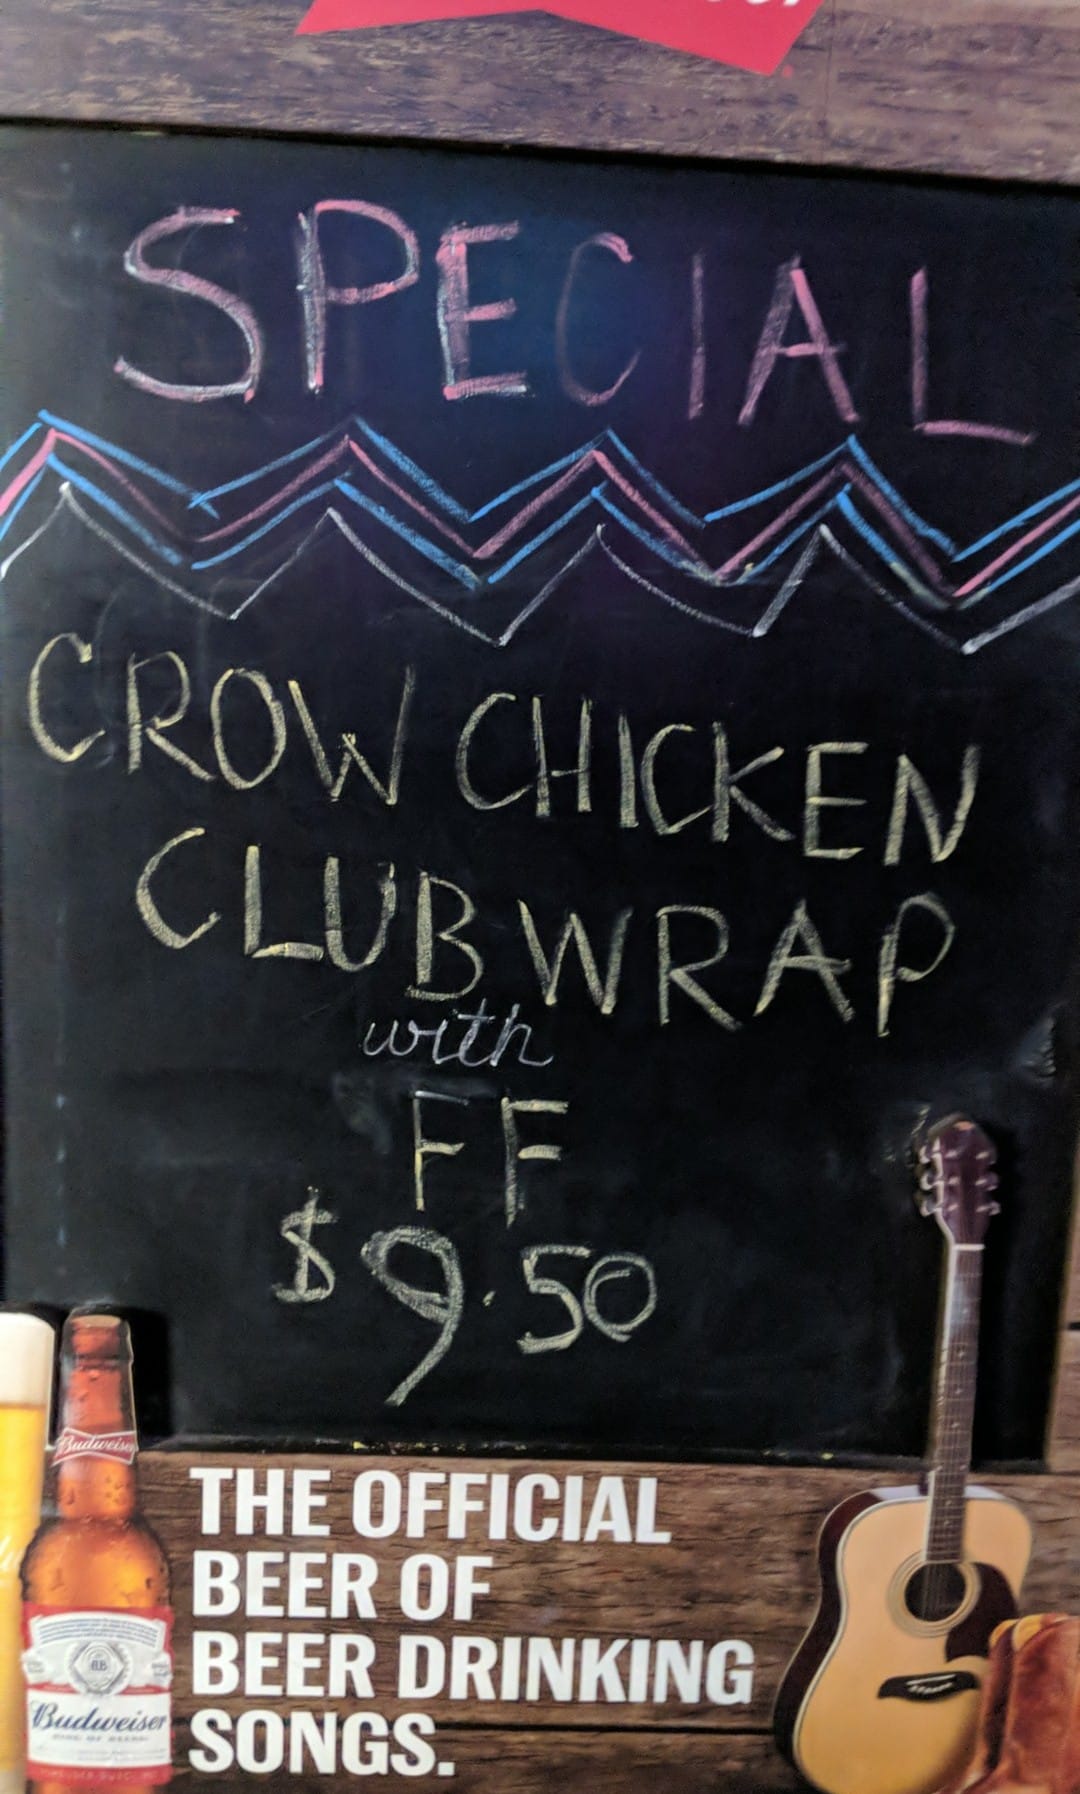 SPECIAL
CROW CHICKEN
CLUB WRAP
with
FF
$9.50
Budweiser
THE OFFICIAL
BEER OF
BEER DRINKING
SONGS.
Budweiser
KING OF BEERS